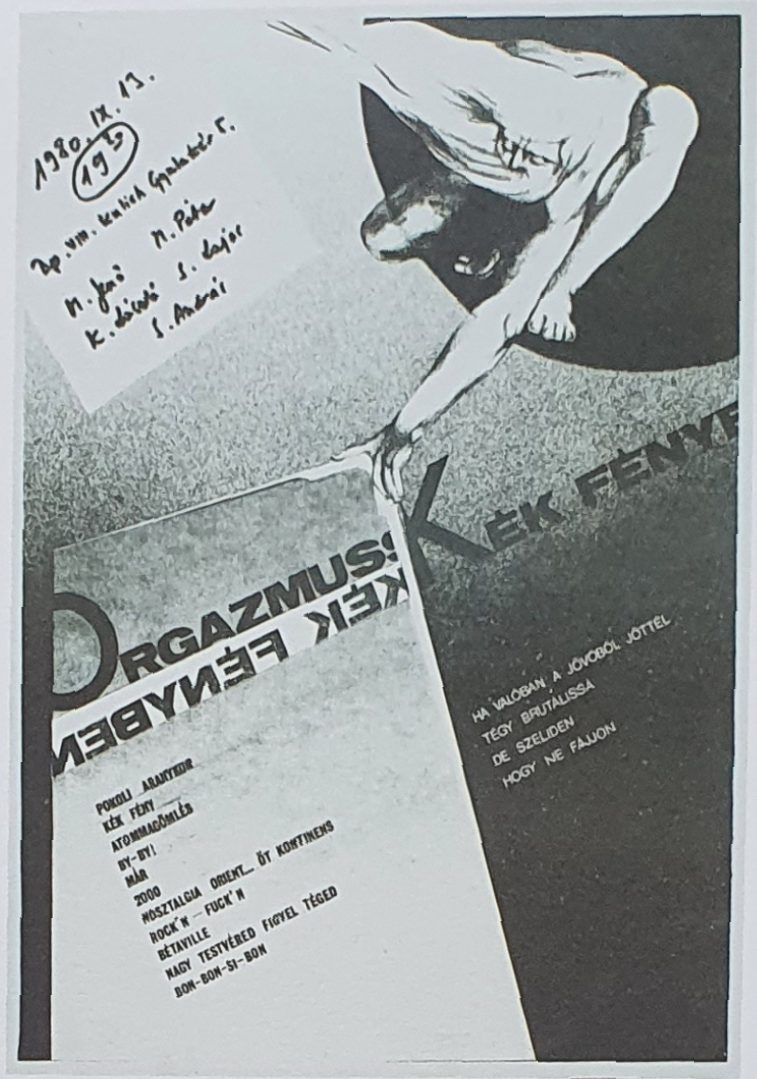 1980. IX. 13.
19³⁰
Bp. VIII. Kulich Gyula tér 5.
M. Jenő M. Péter
K. László S. Lajos
S. András
ORGAZMUSS
KÉK FÉNYBEN
KÉK FÉNYB
HA VALÓBAN A JÖVŐBŐL JÖTTÉL
TÉGY BRUTÁLISSÁ
DE SZELIDEN
HOGY NE FÁJJON
POKOLI ARANYKOR
KÉK FÉNY
ATOMMAGÖMLÉS
BY-BY!
MÁR
2000
NOSZTALGIA ORIENT... ÖT KONTINENS
ROCK'N – FUCK'N
BÉTAVILLE
NAGY TESTVÉRED FIGYEL TÉGED
BON-BON-SI-BON